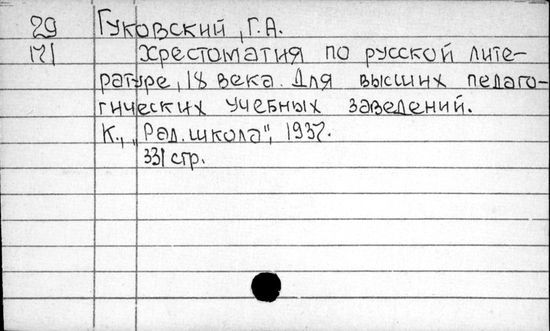 29 Гуковский, Г.А.
171 Хрестоматия по русской лите-
ратуре, 18 века. Для высших педаго-
гических учебных заведений.
К., „Рад. школа", 1937.
331 стр.